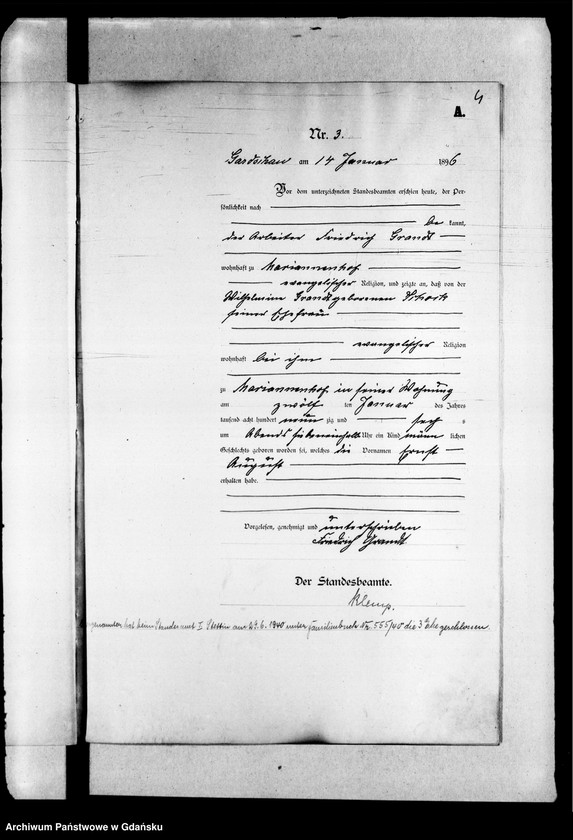 4
A.
Nr. 3.
Gardschau am 14 Januar 1896
Vor dem unterzeichneten Standesbeamten erschien heute, der Per-
sönlichkeit nach
be kannt,
der Arbeiter Friedrich Grandt
wohnhaft zu Mariannenhof
evangelischer Religion, und zeigte an, daß von der
Wilhelmine Grandt geborenen Schark
seiner Ehefrau
evangelischer Religion
wohnhaft bei ihm
zu Mariannenhof in seiner Wohnung
am zwölf ten Januar des Jahres
tausend acht hundert neun zig und sech s
um Abends siebeneinhalb Uhr ein Kind männ lichen
Geschlechts geboren worden sei, welches die Vornamen Ernst
August
erhalten habe.
Vorgelesen, genehmigt und unterschrieben
Friedrich Grandt
Der Standesbeamte.
Klemp.
genannter hat beim Standesamt I Stettin am 29.6.1940 unter Familienbuch Nr. 555/40 die 3te Ehe geschlossen.
Archiwum Państwowe w Gdańsku